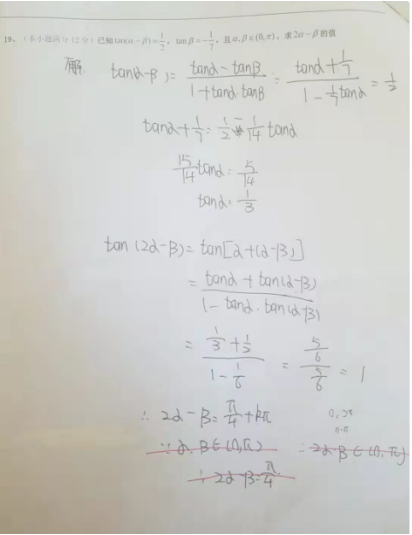 19、(本小题满分12分)已知tan(α-β)=1/2，tanβ=-1/7，且α,β∈(0,π)，求2α-β的值
解 tan(α-β)= (tanα-tanβ)/(1+tanα tanβ) = (tanα+1/7)/(1-1/7tanα) = 1/2
tanα+1/7=1/2-1/14 tanα
15/14 tanα=5/14
tanα=1/3
tan(2α-β)=tan[α+(α-β)]
= (tanα+tan(α-β))/(1-tanα·tan(α-β))
= (1/3+1/2)/(1-1/6) = (5/6)/(5/6) = 1
∴ 2α-β=π/4+kπ
0,2π
∵α,β∈(0,π) ∴2α-β∈(0,π)
∴2α-β=π/4